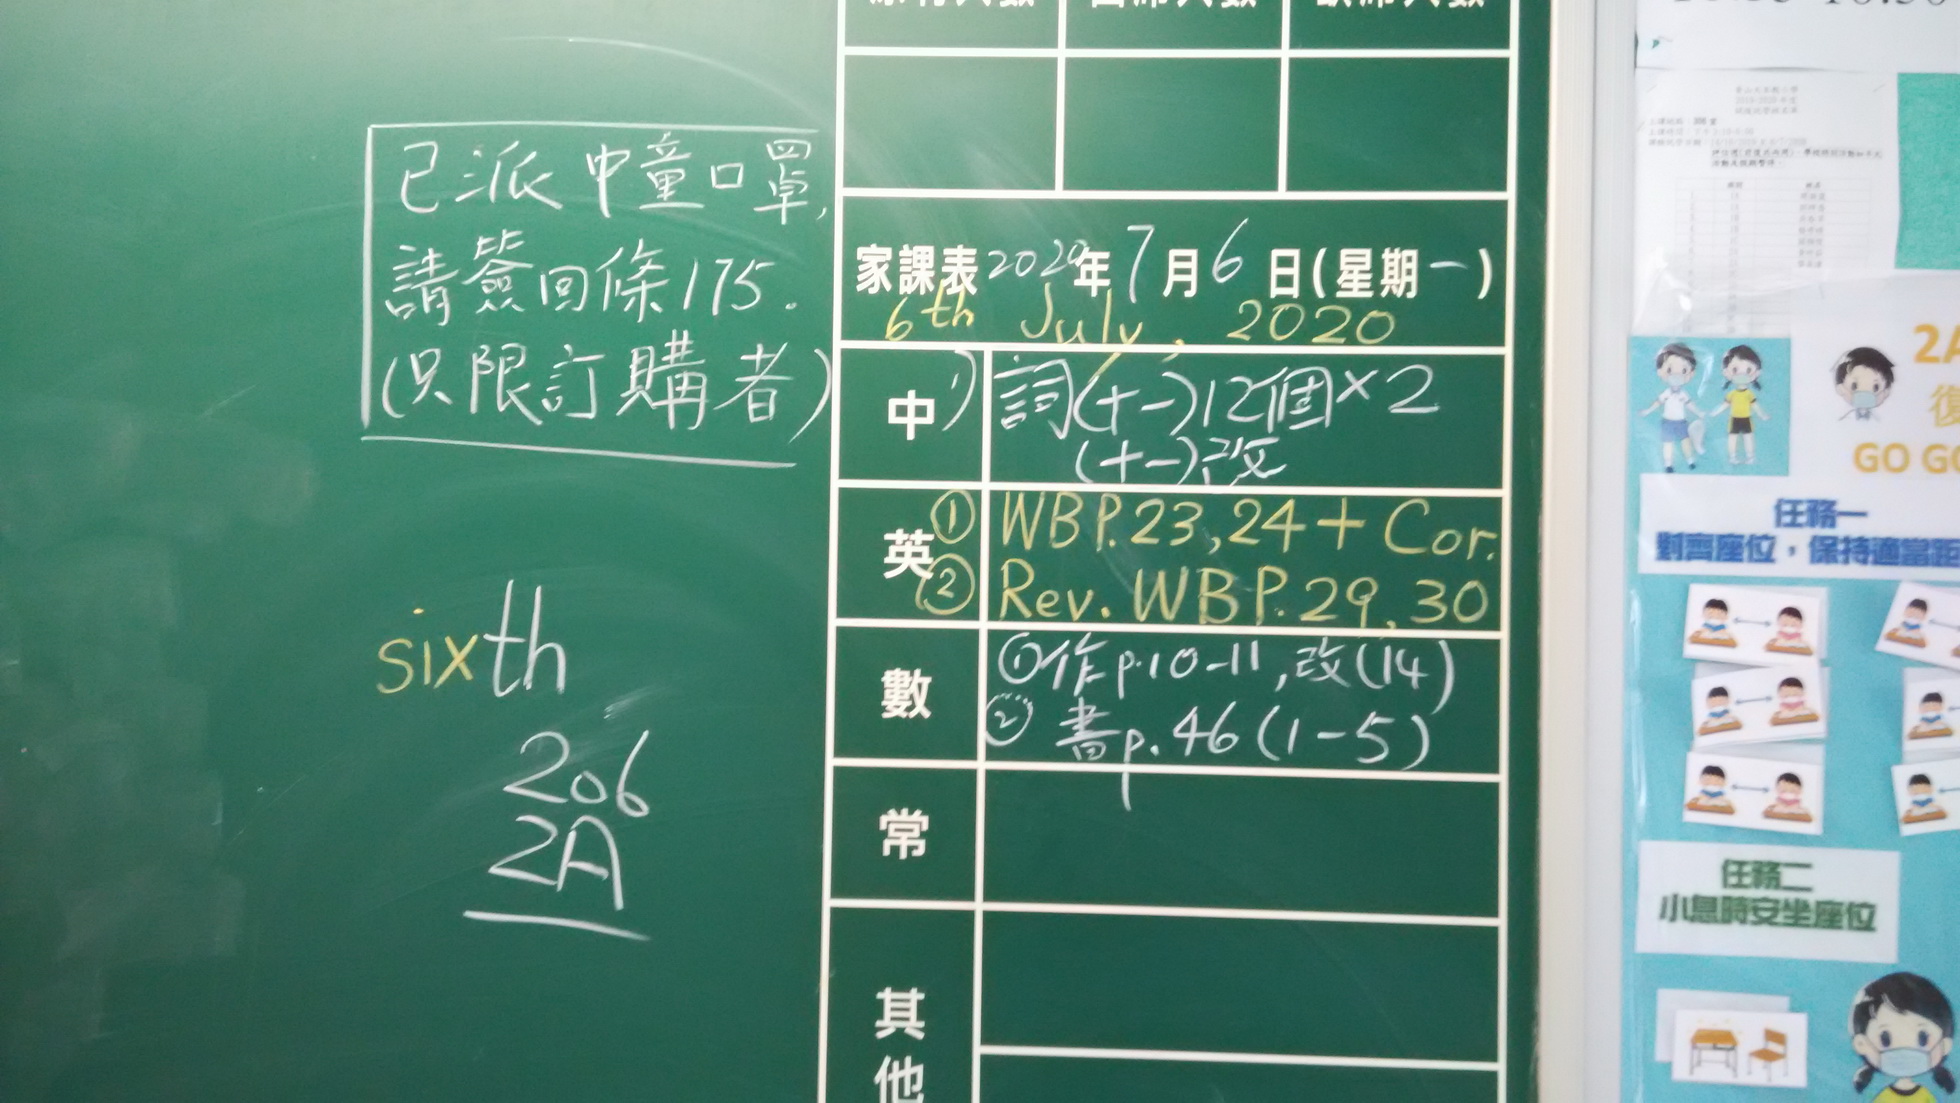 已派中童口罩,
請簽回條175.
(只限訂購者)
sixth
206
2A
家課表2020年7月6日(星期一)
6th July, 2020
中 1) 詞(十一)12個×2
(十一)改
英 ① WB P.23,24 + Cor.
② Rev. WB P.29,30
數 ①作p.10-11,改(14)
② 書p.46(1-5)
常
其他
2A
GO GO
任務一
對齊座位，保持適當距
任務二
小息時安坐座位